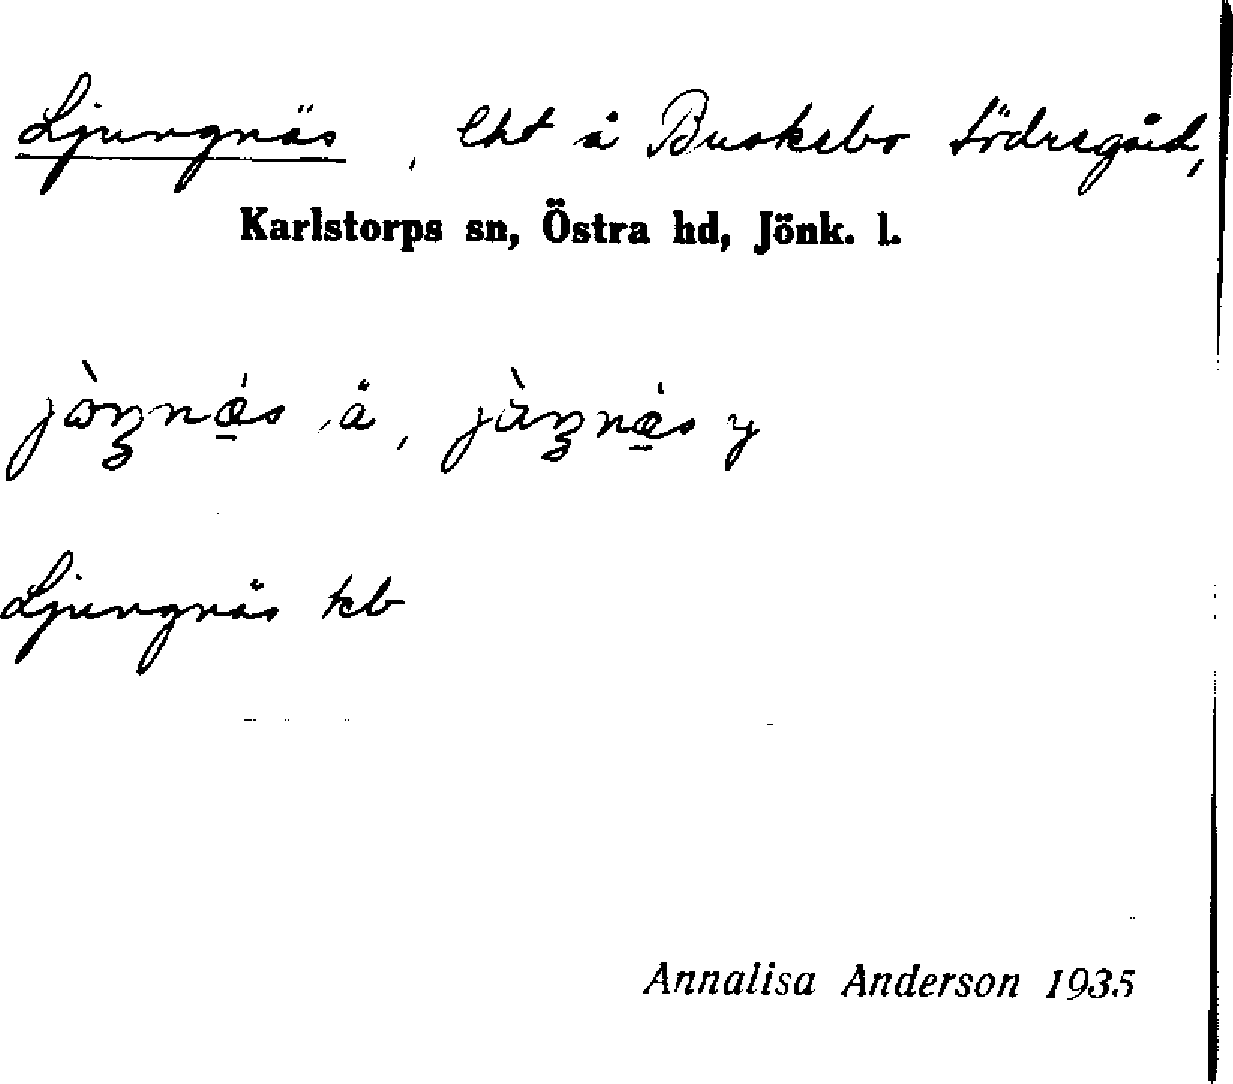 Ljungnäs, lht å Buskebo Södregård,
Karlstorps sn, Östra hd, Jönk. l.
å, y
Ljungnäs kb
Annalisa Anderson 1935